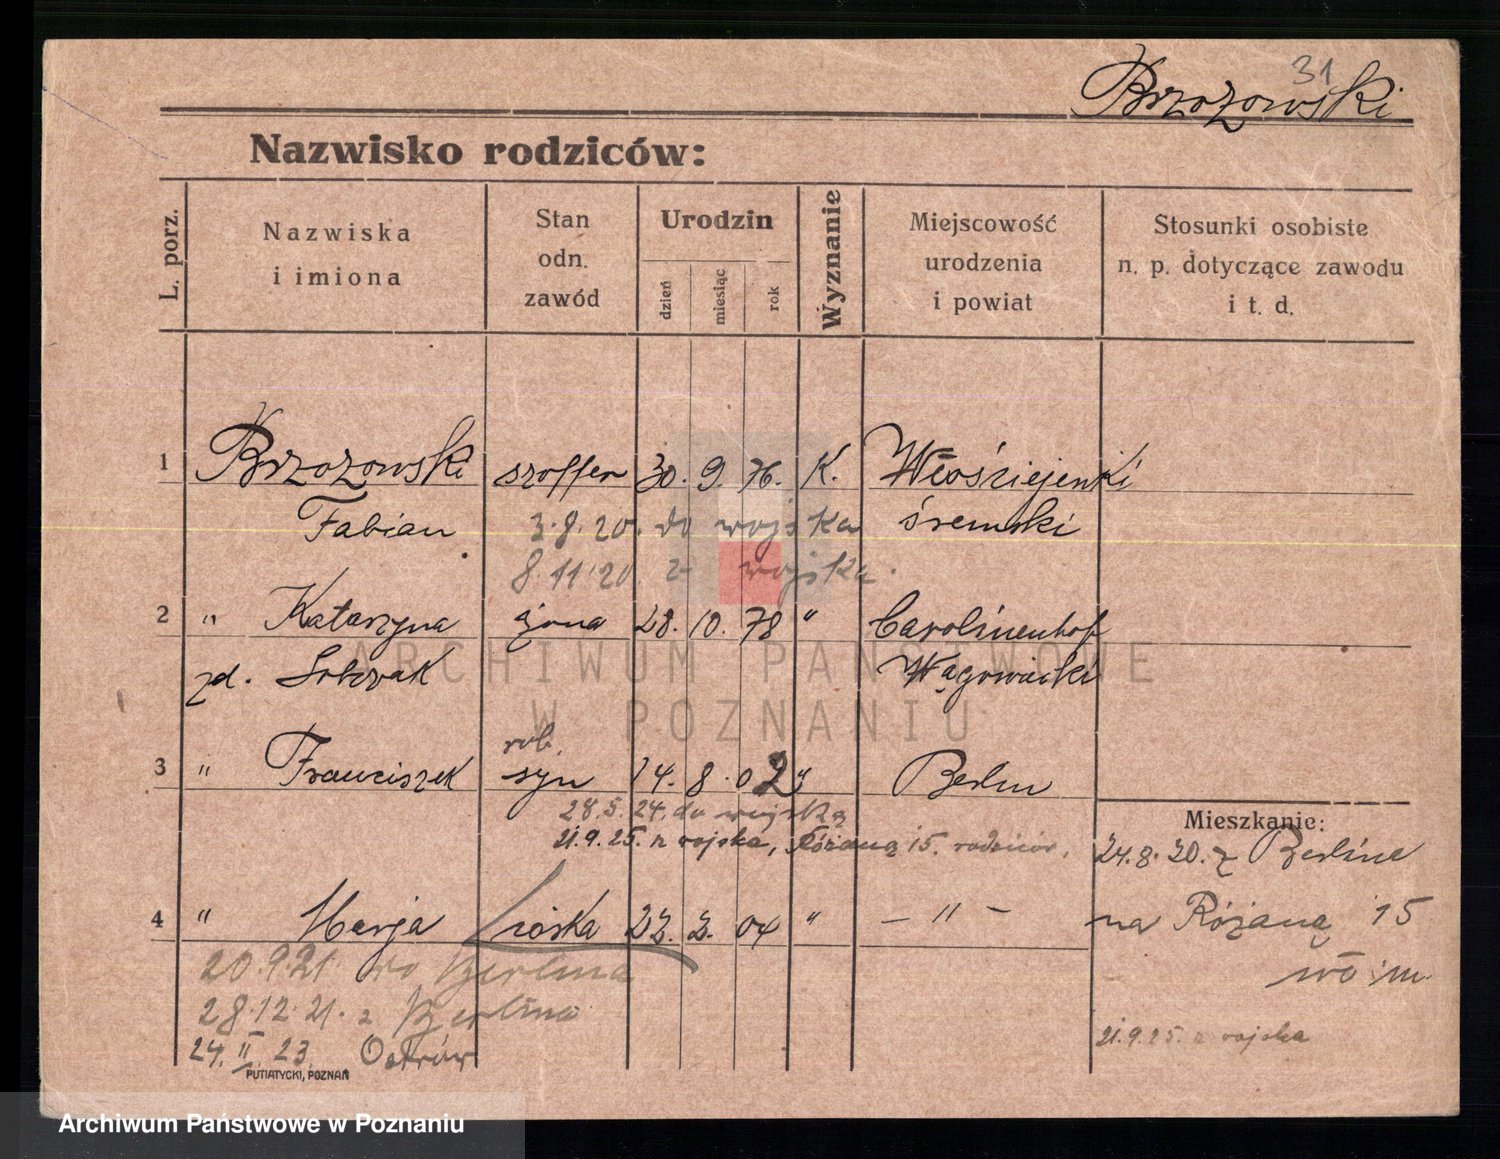 31
Brzozowski
Nazwisko rodziców:
L. porz.
Nazwiska
i imiona
Stan
odn.
zawód
Urodzin
dzień
miesiąc
rok
Wyznanie
Miejscowość
urodzenia
i powiat
Stosunki osobiste
n. p. dotyczące zawodu
i t. d.
1 Brzozowski szoffer 30. 9. 76. K. Włościejenki
Fabian 3.8.20. do wojska śremski
8.11.20. z wojska.
2 " Katarzyna żona 28. 10. 78 " Carolinenhof
zd. Sobczak Wągowiecki
ARCHIWUM PAŃSTWOWE
W POZNANIU
rob.
3 " Franciszek syn 14. 8. 02 " Berlin
28.5.24. do wojska
21.9.25. z wojska, Różana 15. rodziców.
Mieszkanie:
24.8.20. z Berlina
4 " Marja córka 22. 2. 04 " — " — na Różaną 15
20.9.21. do Berlina
28.12.21. z Berlina
24. II. 23. Ostrów
21.9.25. z wojska
PUTIATYCKI, POZNAŃ
Archiwum Państwowe w Poznaniu